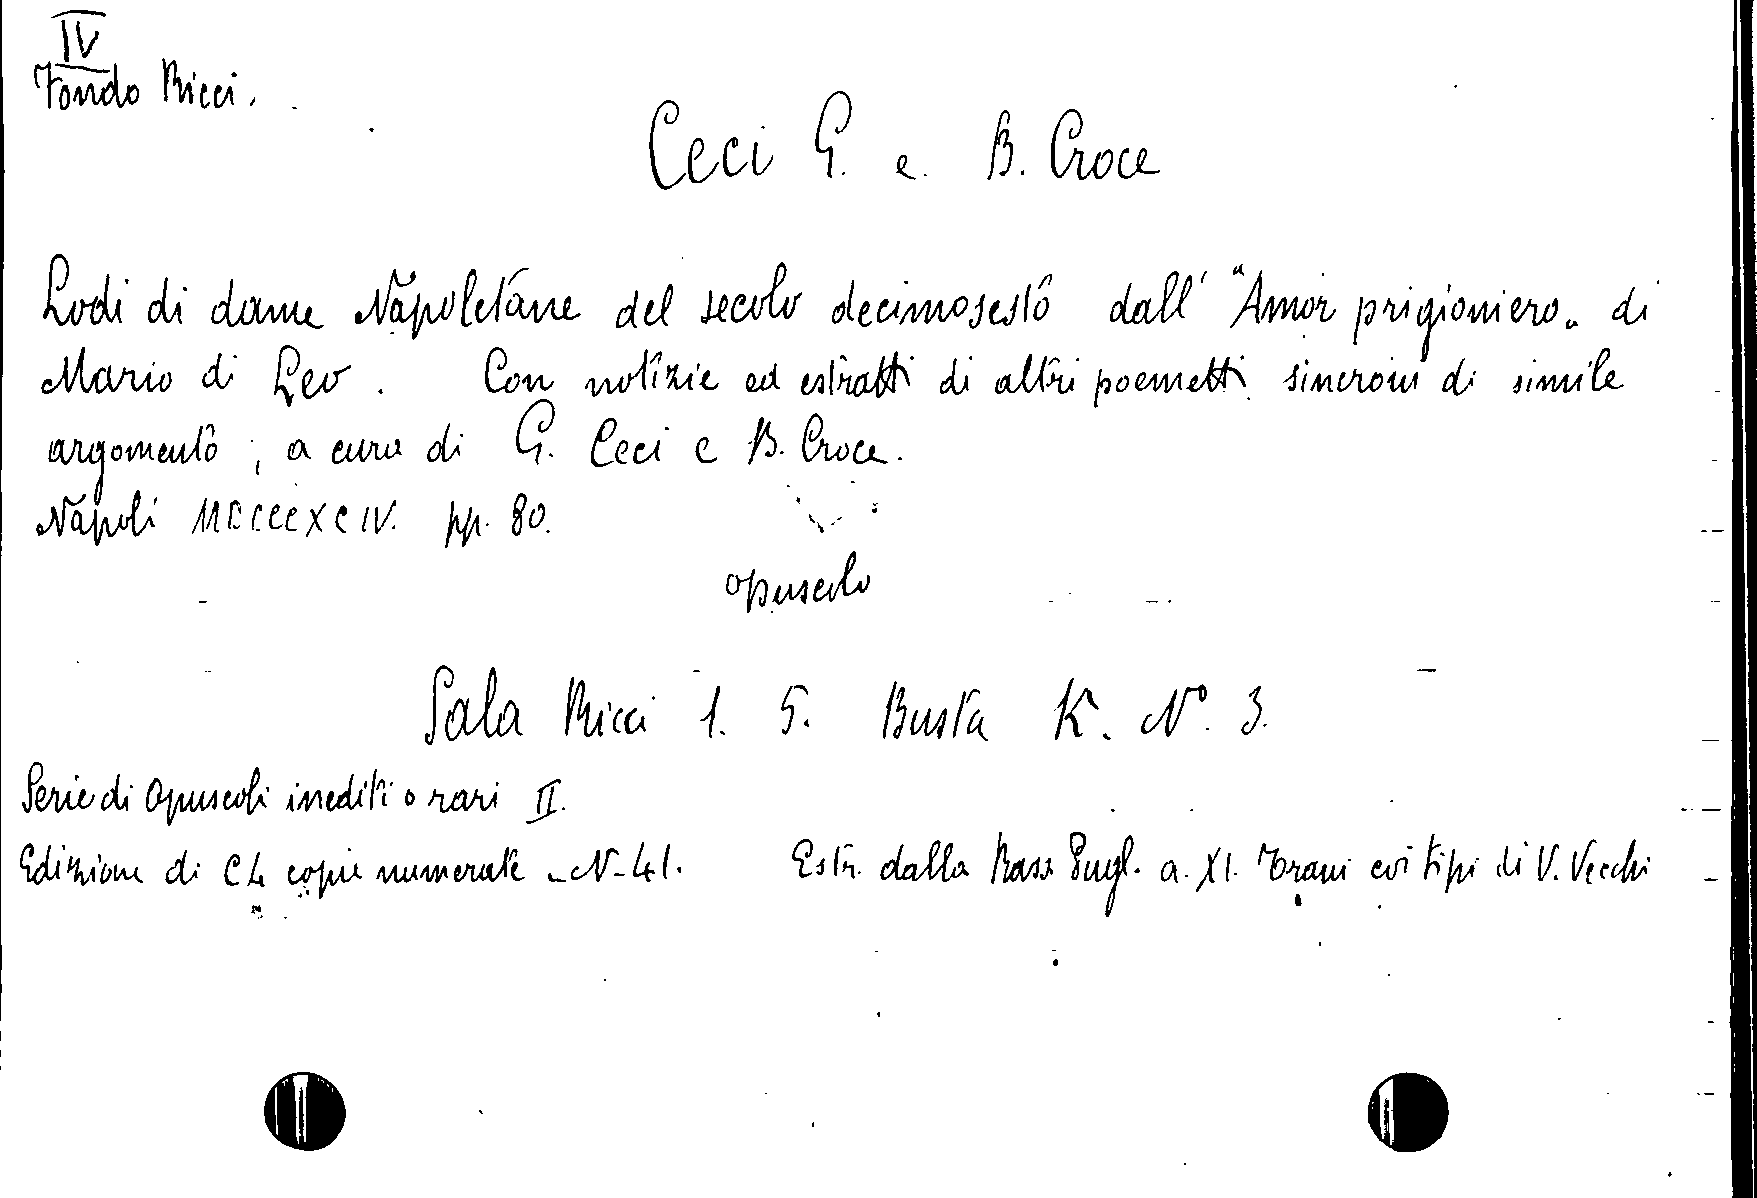 IV
Fondo Ricci.
Ceci G. e. B. Croce
Lodi di dame Napoletane del secolo decimosesto dall' "Amor prigioniero" di
Mario di Leo. Con notizie ed estratti di altri poemetti sincroni di simile
argomento; a cura di G. Ceci e B. Croce.
Napoli MDCCCXCIV. pp. 80.
opuscolo
Sala Ricci 1. 5. Busta K. N° 3.
Serie di Opuscoli inediti o rari II.
Edizione di CL copie numerate - N - 41. Estr. dalla Rass. Pugl. a. XI. Trani coi tipi di V. Vecchi